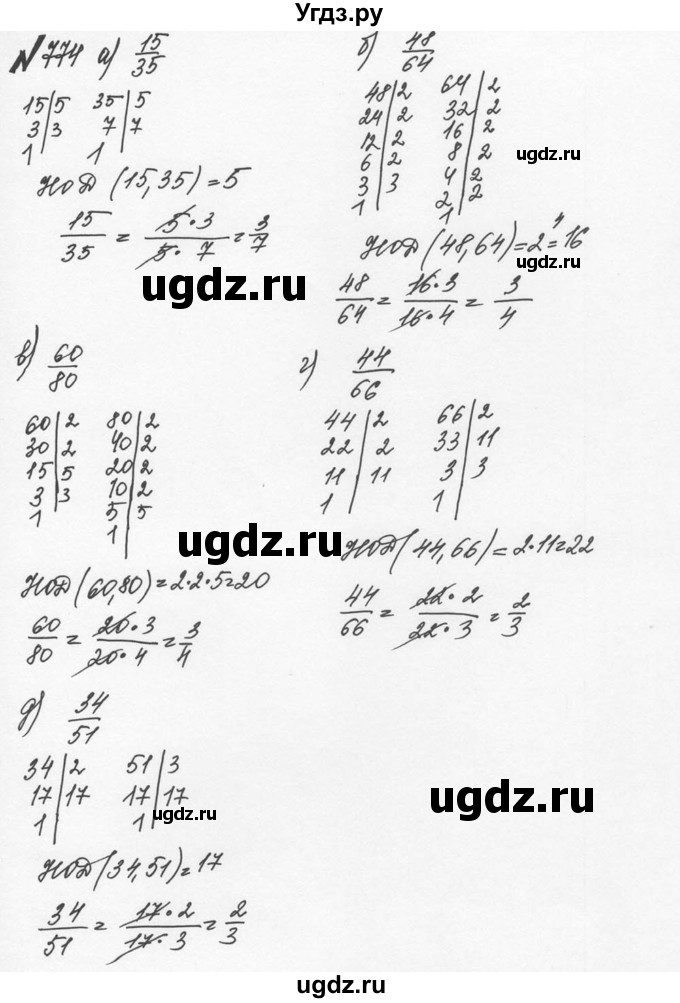 Угдз.ру
№774 а) 15/35
15|5 35|5
3|3 7|7
1| 1|
НОД (15,35)=5
15/35 = 5·3/5·7 = 3/7
б) 48/64
48|2 64|2
24|2 32|2
12|2 16|2
6|2 8|2
3|3 4|2
1| 2|2
1|
НОД(48,64)=2⁴=16
48/64 = 16·3/16·4 = 3/4
в) 60/80
60|2 80|2
30|2 40|2
15|5 20|2
3|3 10|2
1| 5|5
1|
НОД(60,80)=2·2·5=20
60/80 = 20·3/20·4 = 3/4
г) 44/66
44|2 66|2
22|2 33|11
11|11 3|3
1| 1|
НОД(44,66)=2·11=22
44/66 = 22·2/22·3 = 2/3
д) 34/51
34|2 51|3
17|17 17|17
1| 1|
НОД(34,51)=17
34/51 = 17·2/17·3 = 2/3
ugdz.ru
ugdz.ru
ugdz.ru
ugdz.ru
ugdz.ru
ugdz.ru
ugdz.ru
ugdz.ru